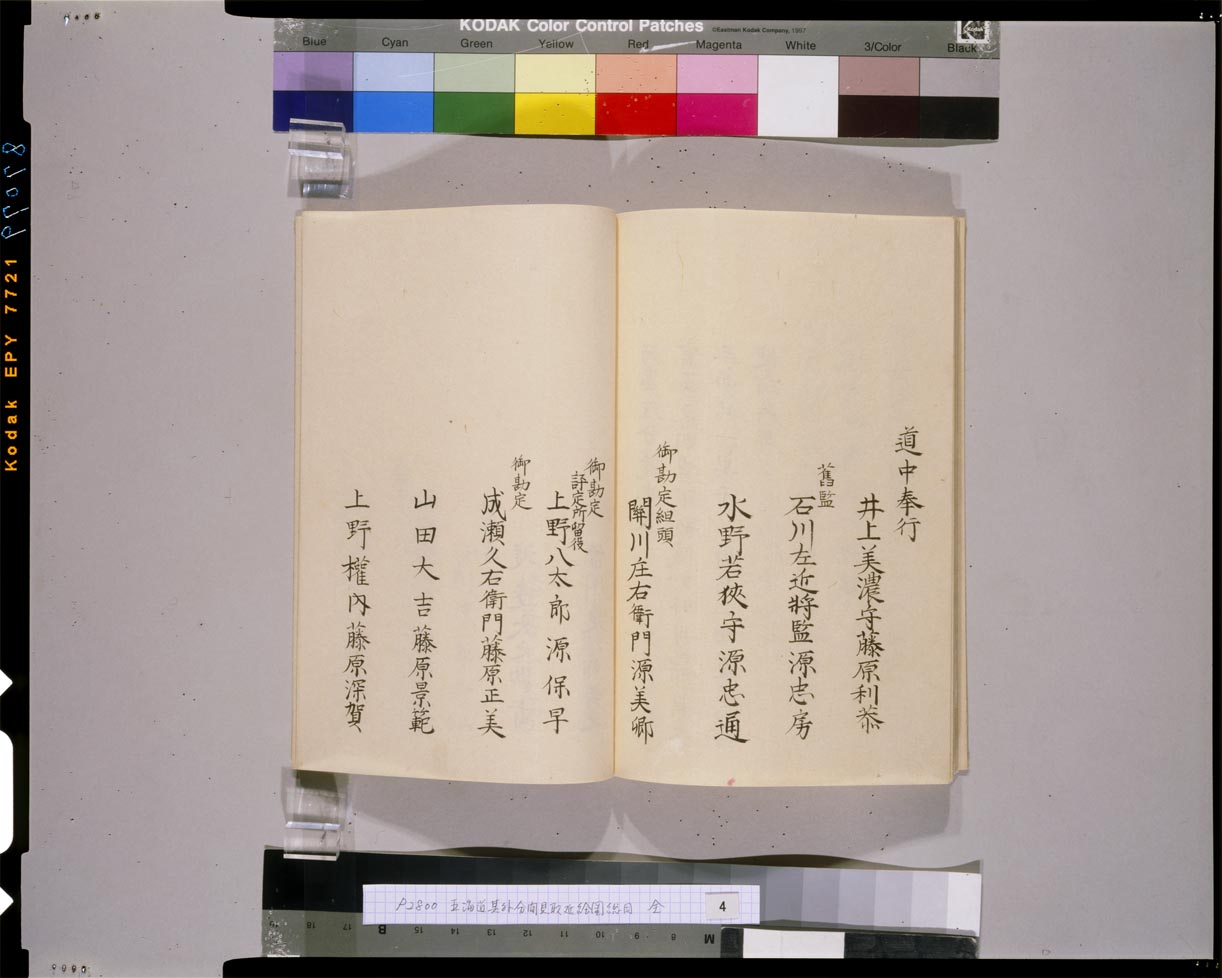 KODAK Color Control Patches
©Eastman Kodak Company, 1997
Blue Cyan Green Yellow Red Magenta White 3/Color Black
Kodak EPY 7721
道中奉行
井上美濃守藤原利恭
舊監
石川左近將監源忠房
水野若狹守源忠通
御勘定組頭
關川庄右衛門源美卿
御勘定
評定所留役
上野八太郎源保早
御勘定
成瀬久右衛門藤原正美
山田大吉藤原景範
上野權内藤原深賀
P2800 五海道其外分間見取延絵図総目 全
4
18 17 B 15 14 13 12 11 10 9 8 M